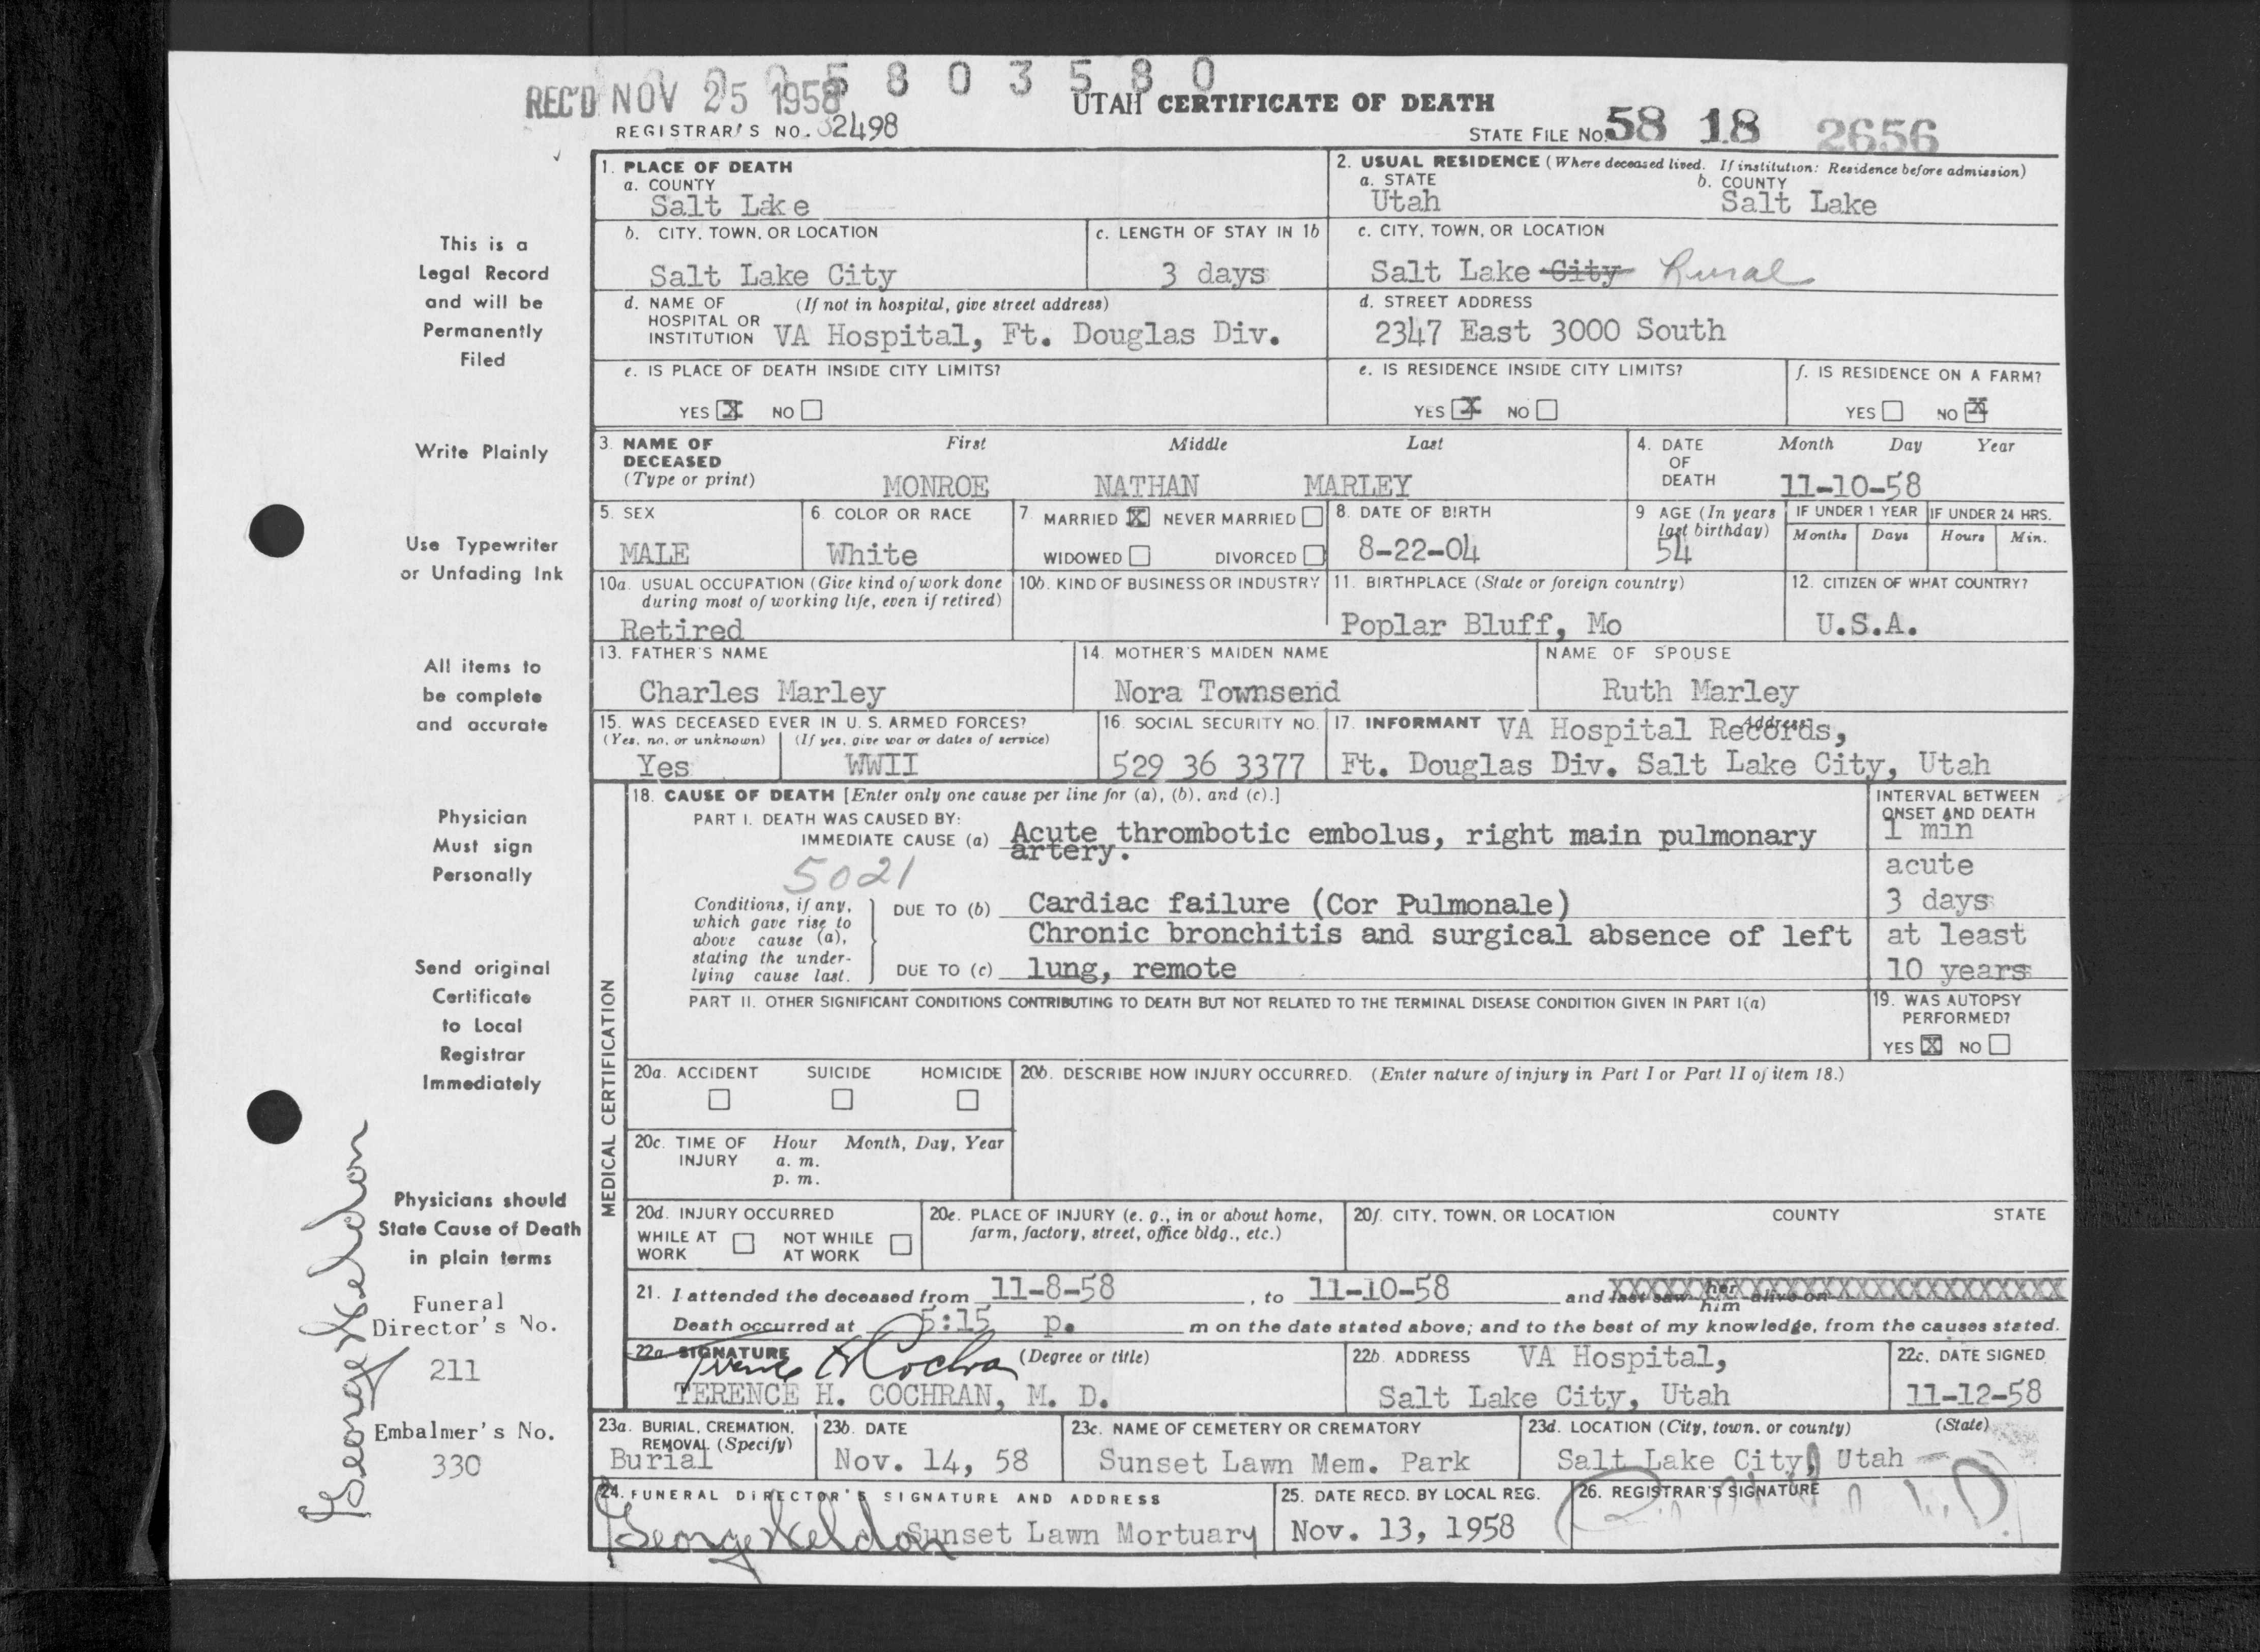 REC'D NOV 25 1958
5 8 0 3 5 8 0
UTAH CERTIFICATE OF DEATH
REGISTRAR'S NO. 2498
STATE FILE NO. 58 18 2656
This is a
Legal Record
and will be
Permanently
Filed
Write Plainly
Use Typewriter
or Unfading Ink
All items to
be complete
and accurate
Physician
Must sign
Personally
Send original
Certificate
to Local
Registrar
Immediately
Physicians should
State Cause of Death
in plain terms
Funeral
Director's No.
211
Embalmer's No.
330
1. PLACE OF DEATH
a. COUNTY
Salt Lake
2. USUAL RESIDENCE (Where deceased lived. If institution: Residence before admission)
a. STATE b. COUNTY
Utah Salt Lake
b. CITY, TOWN, OR LOCATION
Salt Lake City
c. LENGTH OF STAY IN 1b
3 days
c. CITY, TOWN, OR LOCATION
Salt Lake City Rural
d. NAME OF (If not in hospital, give street address)
HOSPITAL OR
INSTITUTION VA Hospital, Ft. Douglas Div.
d. STREET ADDRESS
2347 East 3000 South
e. IS PLACE OF DEATH INSIDE CITY LIMITS?
YES X NO
e. IS RESIDENCE INSIDE CITY LIMITS?
YES X NO
f. IS RESIDENCE ON A FARM?
YES NO X
3. NAME OF First Middle Last
DECEASED
(Type or print) MONROE NATHAN MARLEY
4. DATE Month Day Year
OF
DEATH 11-10-58
5. SEX
MALE
6. COLOR OR RACE
White
7. MARRIED X NEVER MARRIED
WIDOWED DIVORCED
8. DATE OF BIRTH
8-22-04
9 AGE (In years
last birthday)
54
IF UNDER 1 YEAR IF UNDER 24 HRS.
Months Days Hours Min.
10a. USUAL OCCUPATION (Give kind of work done
during most of working life, even if retired)
Retired
10b. KIND OF BUSINESS OR INDUSTRY
11. BIRTHPLACE (State or foreign country)
Poplar Bluff, Mo
12. CITIZEN OF WHAT COUNTRY?
U.S.A.
13. FATHER'S NAME
Charles Marley
14. MOTHER'S MAIDEN NAME
Nora Townsend
NAME OF SPOUSE
Ruth Marley
15. WAS DECEASED EVER IN U. S. ARMED FORCES?
(Yes, no, or unknown) (If yes, give war or dates of service)
Yes WWII
16. SOCIAL SECURITY NO.
529 36 3377
17. INFORMANT Address
VA Hospital Records,
Ft. Douglas Div. Salt Lake City, Utah
MEDICAL CERTIFICATION
18. CAUSE OF DEATH [Enter only one cause per line for (a), (b), and (c).]
INTERVAL BETWEEN
ONSET AND DEATH
PART I. DEATH WAS CAUSED BY:
IMMEDIATE CAUSE (a) Acute thrombotic embolus, right main pulmonary
artery.
1 min
acute
5021
Conditions, if any,
which gave rise to
above cause (a),
stating the under-
lying cause last.
DUE TO (b) Cardiac failure (Cor Pulmonale)
3 days
Chronic bronchitis and surgical absence of left
DUE TO (c) lung, remote
at least
10 years
PART II. OTHER SIGNIFICANT CONDITIONS CONTRIBUTING TO DEATH BUT NOT RELATED TO THE TERMINAL DISEASE CONDITION GIVEN IN PART I(a)
19. WAS AUTOPSY
PERFORMED?
YES X NO
20a. ACCIDENT SUICIDE HOMICIDE
20b. DESCRIBE HOW INJURY OCCURRED. (Enter nature of injury in Part I or Part II of item 18.)
20c. TIME OF Hour Month, Day, Year
INJURY a. m.
p. m.
20d. INJURY OCCURRED
WHILE AT NOT WHILE
WORK AT WORK
20e. PLACE OF INJURY (e. g., in or about home,
farm, factory, street, office bldg., etc.)
20f. CITY, TOWN, OR LOCATION COUNTY STATE
21. I attended the deceased from 11-8-58, to 11-10-58 and last saw her him alive on
Death occurred at 5:15 p. m on the date stated above; and to the best of my knowledge, from the causes stated.
22a. SIGNATURE (Degree or title)
Terence H Cochran
TERENCE H. COCHRAN, M. D.
22b. ADDRESS VA Hospital,
Salt Lake City, Utah
22c. DATE SIGNED
11-12-58
23a. BURIAL, CREMATION,
REMOVAL (Specify)
Burial
23b. DATE
Nov. 14, 58
23c. NAME OF CEMETERY OR CREMATORY
Sunset Lawn Mem. Park
23d. LOCATION (City, town, or county) (State)
Salt Lake City, Utah
24. FUNERAL DIRECTOR'S SIGNATURE AND ADDRESS
Sunset Lawn Mortuary
25. DATE RECD. BY LOCAL REG.
Nov. 13, 1958
26. REGISTRAR'S SIGNATURE